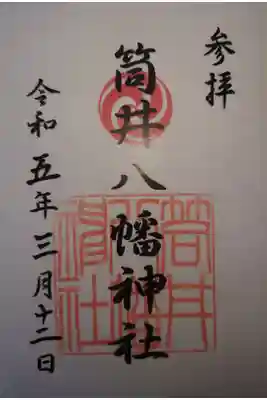 参拝
筒井八幡神社
令和五年三月十二日